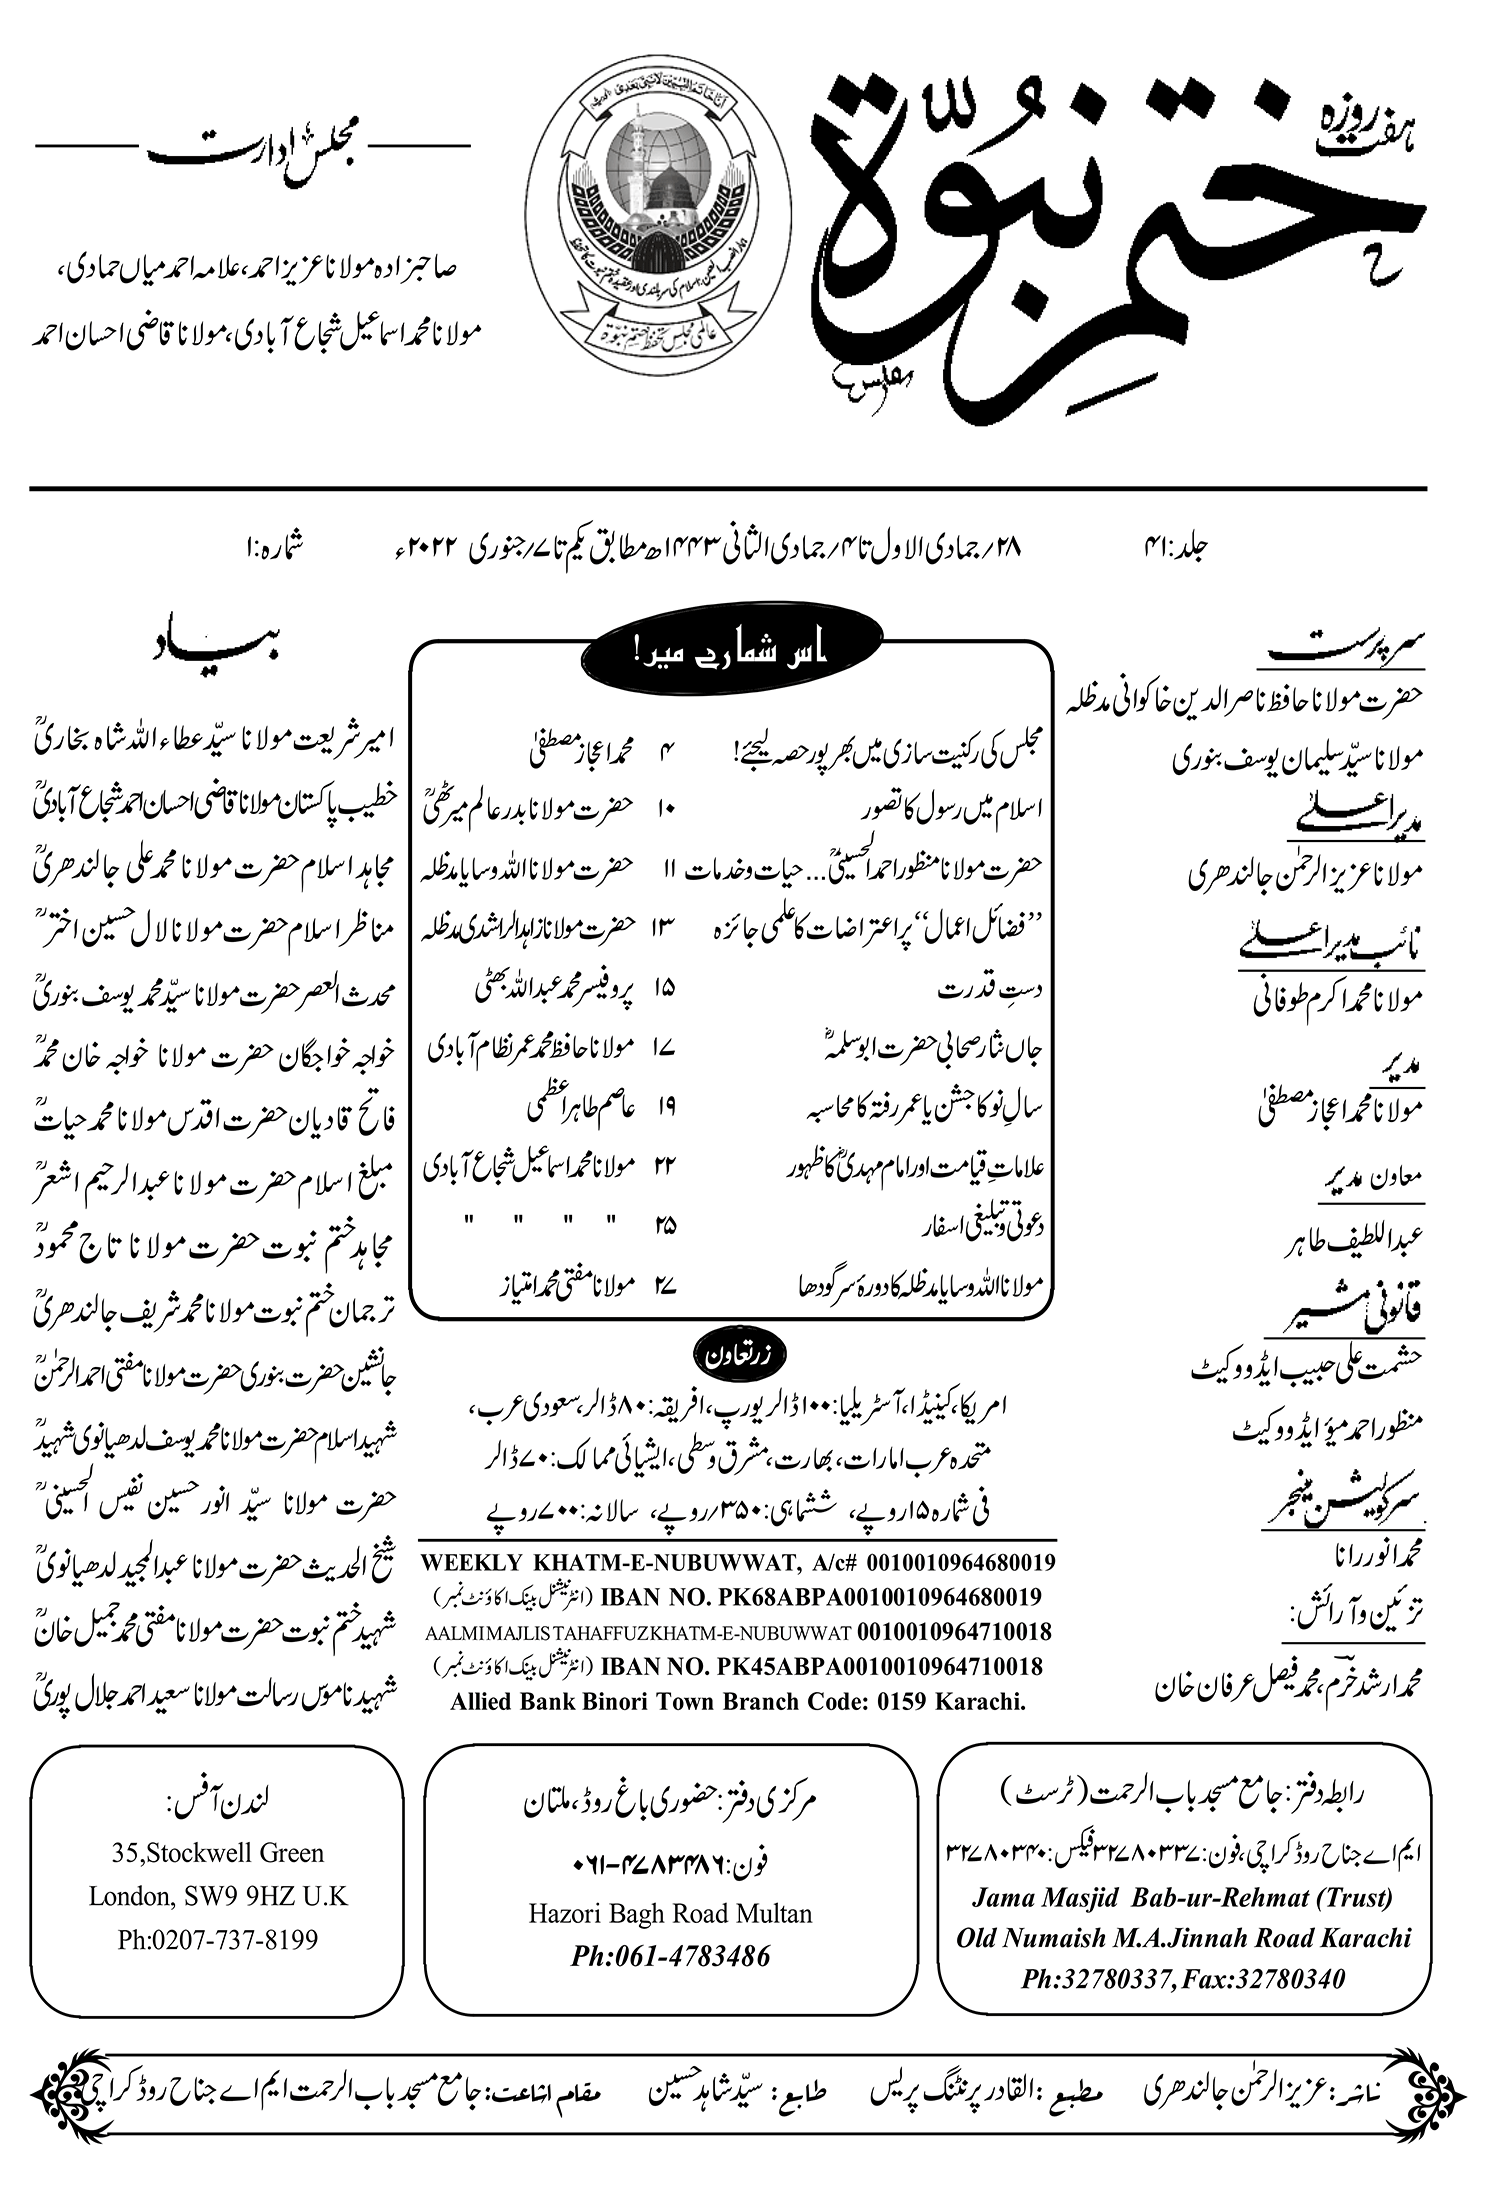 ہفت روزہ
ختم نبوۃ
مجلس ادارت
صاحبزادہ مولانا عزیز احمد، علامہ احمد میاں حمادی،
مولانا محمد اسماعیل شجاع آبادی، مولانا قاضی احسان احمد
عالمی مجلس تحفظ ختم نبوۃ
جلد: ۴۱
۲۸؍ جمادی الاول تا ۴؍ جمادی الثانی ۱۴۴۳ھ مطابق یکم تا ۷؍ جنوری ۲۰۲۲ء
شمارہ: ۱
سرپرست
حضرت مولانا حافظ ناصر الدین خاکوانی مدظلہ
مولانا سیّد سلیمان یوسف بنوری
مدیر اعلیٰ
مولانا عزیز الرحمٰن جالندھری
نائب مدیر اعلیٰ
مولانا محمد اکرم طوفانی
مدیر
مولانا محمد اعجاز مصطفیٰ
معاون مدیر
عبد اللطیف طاہر
قانونی مشیر
حشمت علی حبیب ایڈووکیٹ
منظور احمد میؤ ایڈووکیٹ
سرکولیشن منیجر
محمد انور رانا
تزئین و آرائش:
محمد ارشد خرّم، محمد فیصل عرفان خان
اس شمارے میں!
مجلس کی رکنیت سازی میں بھرپور حصہ لیجئے! ۴ محمد اعجاز مصطفیٰ
اسلام میں رسول کا تصور ۱۰ حضرت مولانا بدر عالم میرٹھیؒ
حضرت مولانا منظور احمد الحسینیؒ... حیات و خدمات ۱۱ حضرت مولانا اللہ وسایا مدظلہ
’’فضائل اعمال‘‘ پر اعتراضات کا علمی جائزہ ۱۳ حضرت مولانا زاہد الراشدی مدظلہ
دستِ قدرت ۱۵ پروفیسر محمد عبد اللہ بھٹی
جاں نثار صحابی حضرت ابو سلمہؓ ۱۷ مولانا حافظ محمد عمر نظام آبادی
سالِ نو کا جشن یا عمر رفتہ کا محاسبہ ۱۹ عاصم طاہر اعظمی
علاماتِ قیامت اور امام مہدیؓ کا ظہور ۲۲ مولانا محمد اسماعیل شجاع آبادی
دعوتی و تبلیغی اسفار ۲۵ " " " "
مولانا اللہ وسایا مدظلہ کا دورۂ سرگودھا ۲۷ مولانا مفتی محمد امتیاز
زرِتعاون
امریکا، کینیڈا، آسٹریلیا: ۱۰۰ ڈالر یورپ، افریقہ: ۸۰ ڈالر، سعودی عرب،
متحدہ عرب امارات، بھارت، مشرق وسطی، ایشیائی ممالک: ۷۰ ڈالر
فی شمارہ ۱۵ روپے، ششماہی: ۳۵۰؍ روپے، سالانہ: ۷۰۰ روپے
WEEKLY KHATM-E-NUBUWWAT, A/c# 0010010964680019
IBAN NO. PK68ABPA0010010964680019 (انٹرنیشنل بینک اکاؤنٹ نمبر)
AALMI MAJLIS TAHAFFUZ KHATM-E-NUBUWWAT 0010010964710018
IBAN NO. PK45ABPA0010010964710018 (انٹرنیشنل بینک اکاؤنٹ نمبر)
Allied Bank Binori Town Branch Code: 0159 Karachi.
بیاد
امیر شریعت مولانا سیّد عطاء اللہ شاہ بخاریؒ
خطیب پاکستان مولانا قاضی احسان احمد شجاع آبادیؒ
مجاہد اسلام حضرت مولانا محمد علی جالندھریؒ
مناظر اسلام حضرت مولانا لال حسین اخترؒ
محدث العصر حضرت مولانا سیّد محمد یوسف بنوریؒ
خواجہ خواجگان حضرت مولانا خواجہ خان محمدؒ
فاتح قادیان حضرت اقدس مولانا محمد حیاتؒ
مبلغ اسلام حضرت مولانا عبد الرحیم اشعرؒ
مجاہد ختم نبوت حضرت مولانا تاج محمودؒ
ترجمان ختم نبوت مولانا محمد شریف جالندھریؒ
جانشین حضرت بنوری حضرت مولانا مفتی احمد الرحمٰنؒ
شہید اسلام حضرت مولانا محمد یوسف لدھیانوی شہیدؒ
حضرت مولانا سیّد انور حسین نفیس الحسینیؒ
شیخ الحدیث حضرت مولانا عبد المجید لدھیانویؒ
شہید ختم نبوت حضرت مولانا مفتی محمد جمیل خانؒ
شہید ناموس رسالت مولانا سعید احمد جلال پوریؒ
رابطہ دفتر: جامع مسجد باب الرحمت (ٹرسٹ)
ایم اے جناح روڈ کراچی، فون: ۳۲۷۸۰۳۳۷ فیکس: ۳۲۷۸۰۳۴۰
Jama Masjid Bab-ur-Rehmat (Trust)
Old Numaish M.A.Jinnah Road Karachi
Ph:32780337, Fax:32780340
مرکزی دفتر: حضوری باغ روڈ، ملتان
فون: ۰۶۱-۴۷۸۳۴۸۶
Hazori Bagh Road Multan
Ph:061-4783486
لندن آفس:
35,Stockwell Green
London, SW9 9HZ U.K
Ph:0207-737-8199
ناشر: عزیز الرحمٰن جالندھری مطبع: القادر پرنٹنگ پریس طابع: سیّد شاہد حسین مقام اشاعت: جامع مسجد باب الرحمت ایم اے جناح روڈ کراچی